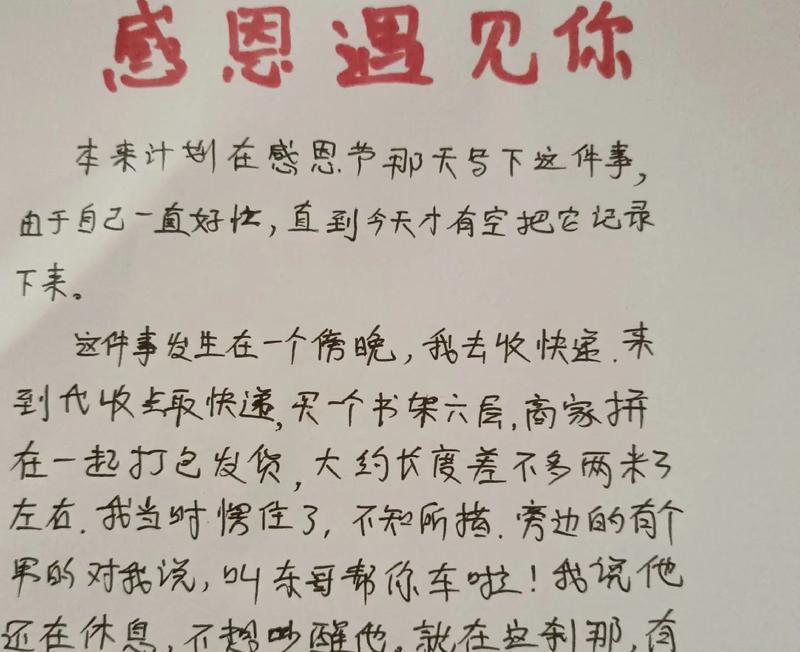 感恩遇见你
本来计划在感恩节那天写下这件事,
由于自己一直好忙,直到今天才有空把它记录
下来。
这件事发生在一个傍晚,我去收快递.来
到代收点取快递,买一个书架六层,商家拼
在一起打包发货,大约长度差不多两米了
左右.我当时愣住了,不知所措.旁边的有个
男的对我说,叫东哥帮你车啦!我说他
还在休息,不想吵醒他。就在这刹那,有